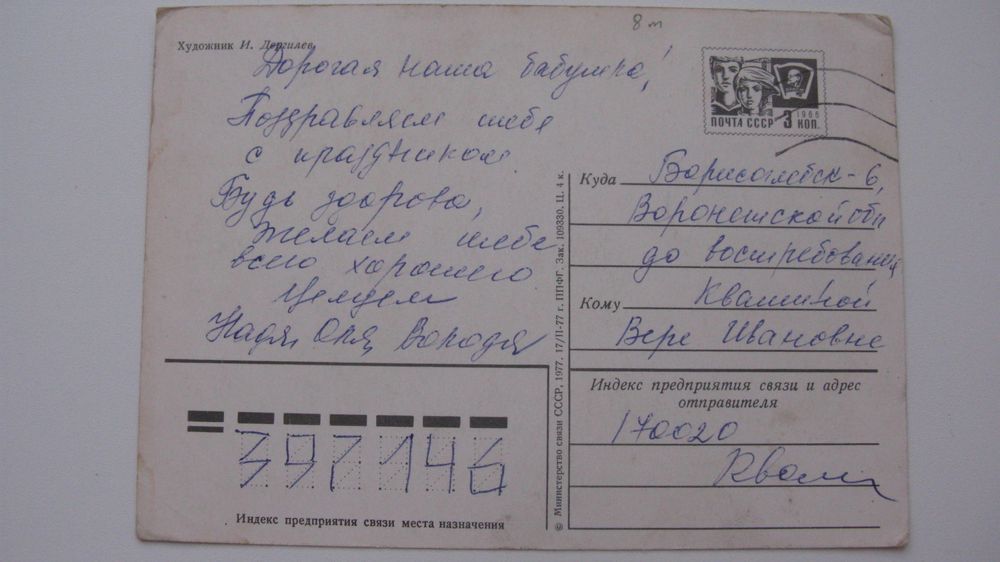 8 т
Художник И. Дергилев
Дорогая наша бабушка!
Поздравляем тебя
с праздником
Будь здорова,
желаем тебе
всего хорошего
Целуем
Надя, Оля, Володя
ПОЧТА СССР
1966
3 КОП.
Куда Борисоглебск-6,
Воронежской обл
до востребования
Кому Квашиной
Вере Ивановне
Индекс предприятия связи и адрес
отправителя
170020
397146
Индекс предприятия связи места назначения
© Министерство связи СССР, 1977. 17/II-77 г. ППФГ. Зак. 109330. Ц. 4 к.